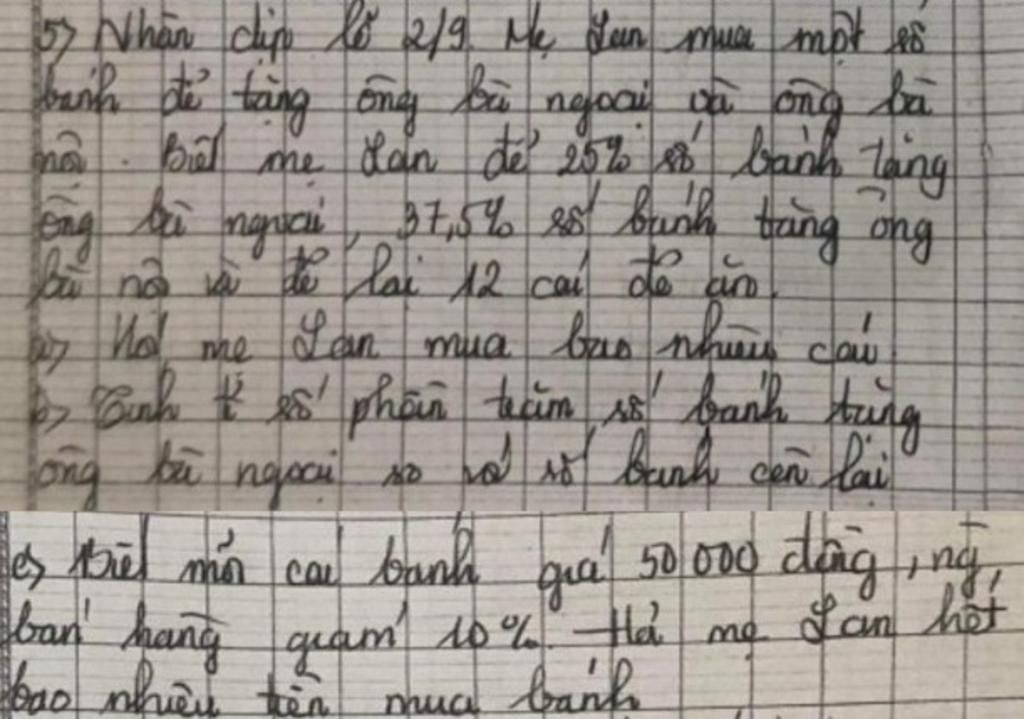 5) Nhân dịp lễ 2/9 Mẹ Lan mua một số
bánh để tặng ông bà ngoại và ông bà
nội. Biết mẹ Lan để 25% số bánh tặng
ông bà ngoại, 37,5% số bánh tặng ông
bà nội và để lại 12 cái để ăn.
a) Hỏi mẹ Lan mua bao nhiêu cái
b) Tính tỉ số phần trăm số bánh tặng
ông bà ngoại so với số bánh còn lại
c) Biết mỗi cái bánh giá 50 000 đồng, ng
bán hàng giảm 10% Hỏi mẹ Lan hết
bao nhiêu tiền mua bánh